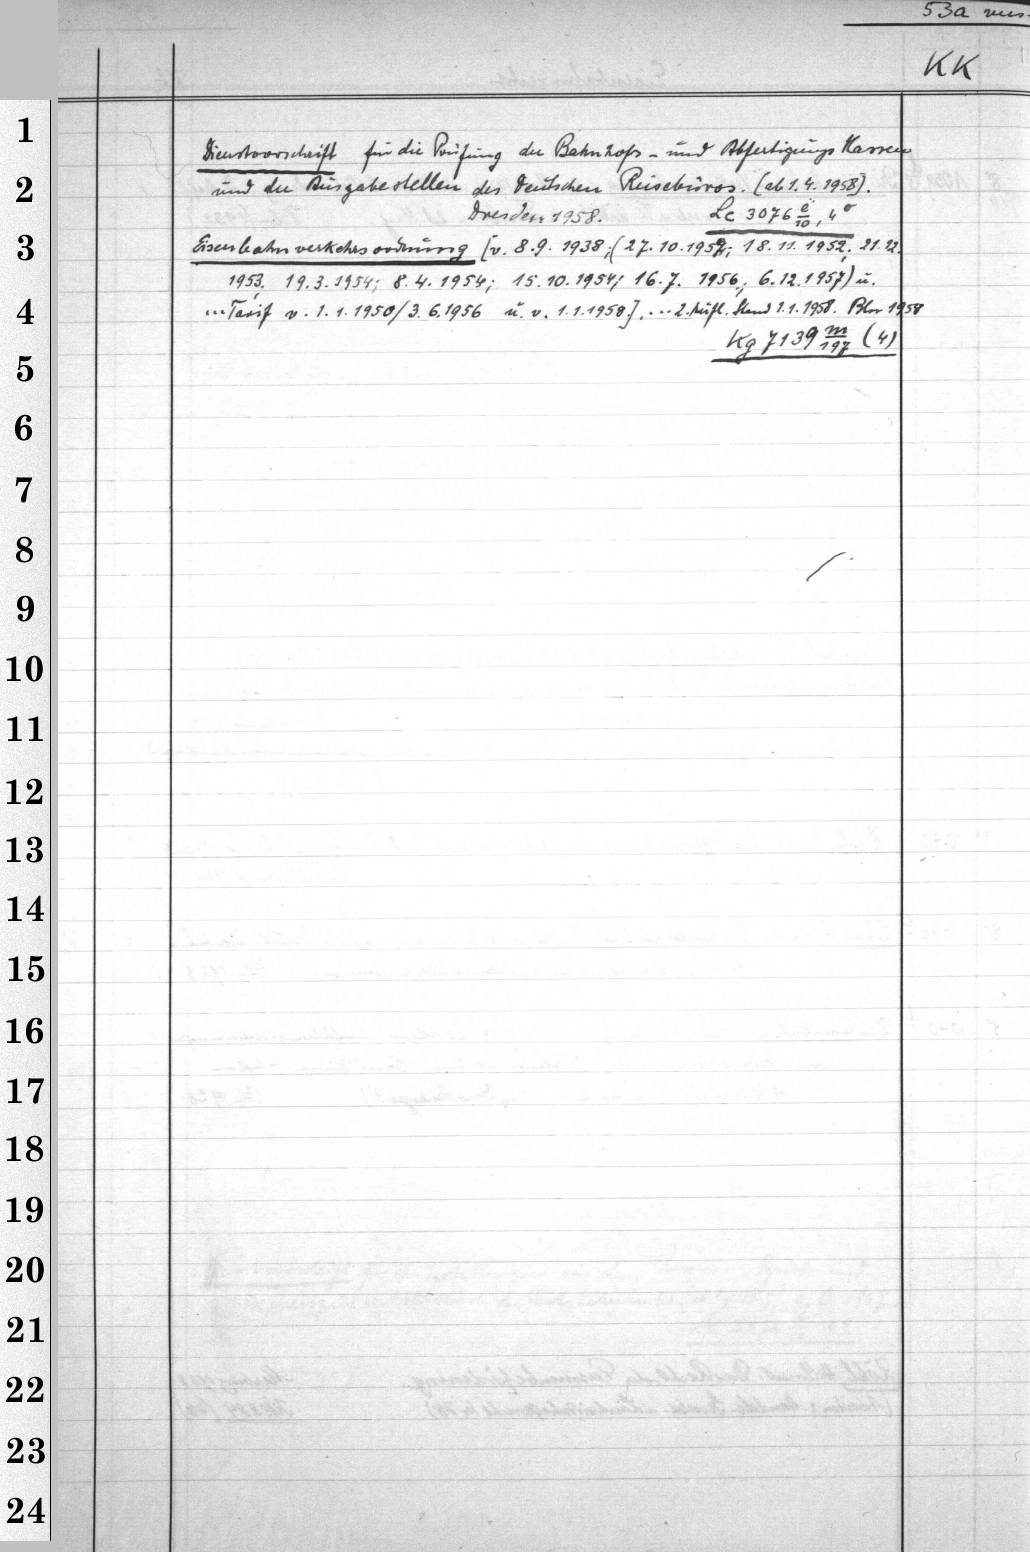 53a
KK
Dienstvorschrift für die Prüfung der Bahnhofs- und Abfertigungs Kassen
und der Ausgabestellen des Deutschen Reisebüros. (ab 1.4.1958).
Dresden 1958. Lc 3076 e/10, 4°
Eisenbahnverkehrsordnung [v. 8.9.1938; (27.10.1952; 18.11.1952; 21.12.
1953; 19.3.1954; 8.4.1954; 15.10.1954; 16.7.1956; 6.12.1957) u.
...Tarif v. 1.1.1950/3.6.1956 u. v. 1.1.1958]. ... 2. Aufl. Stand 1.1.1958. Bln 1958
Kg 7139 m/197 (4)
1
2
3
4
5
6
7
8
9
10
11
12
13
14
15
16
17
18
19
20
21
22
23
24